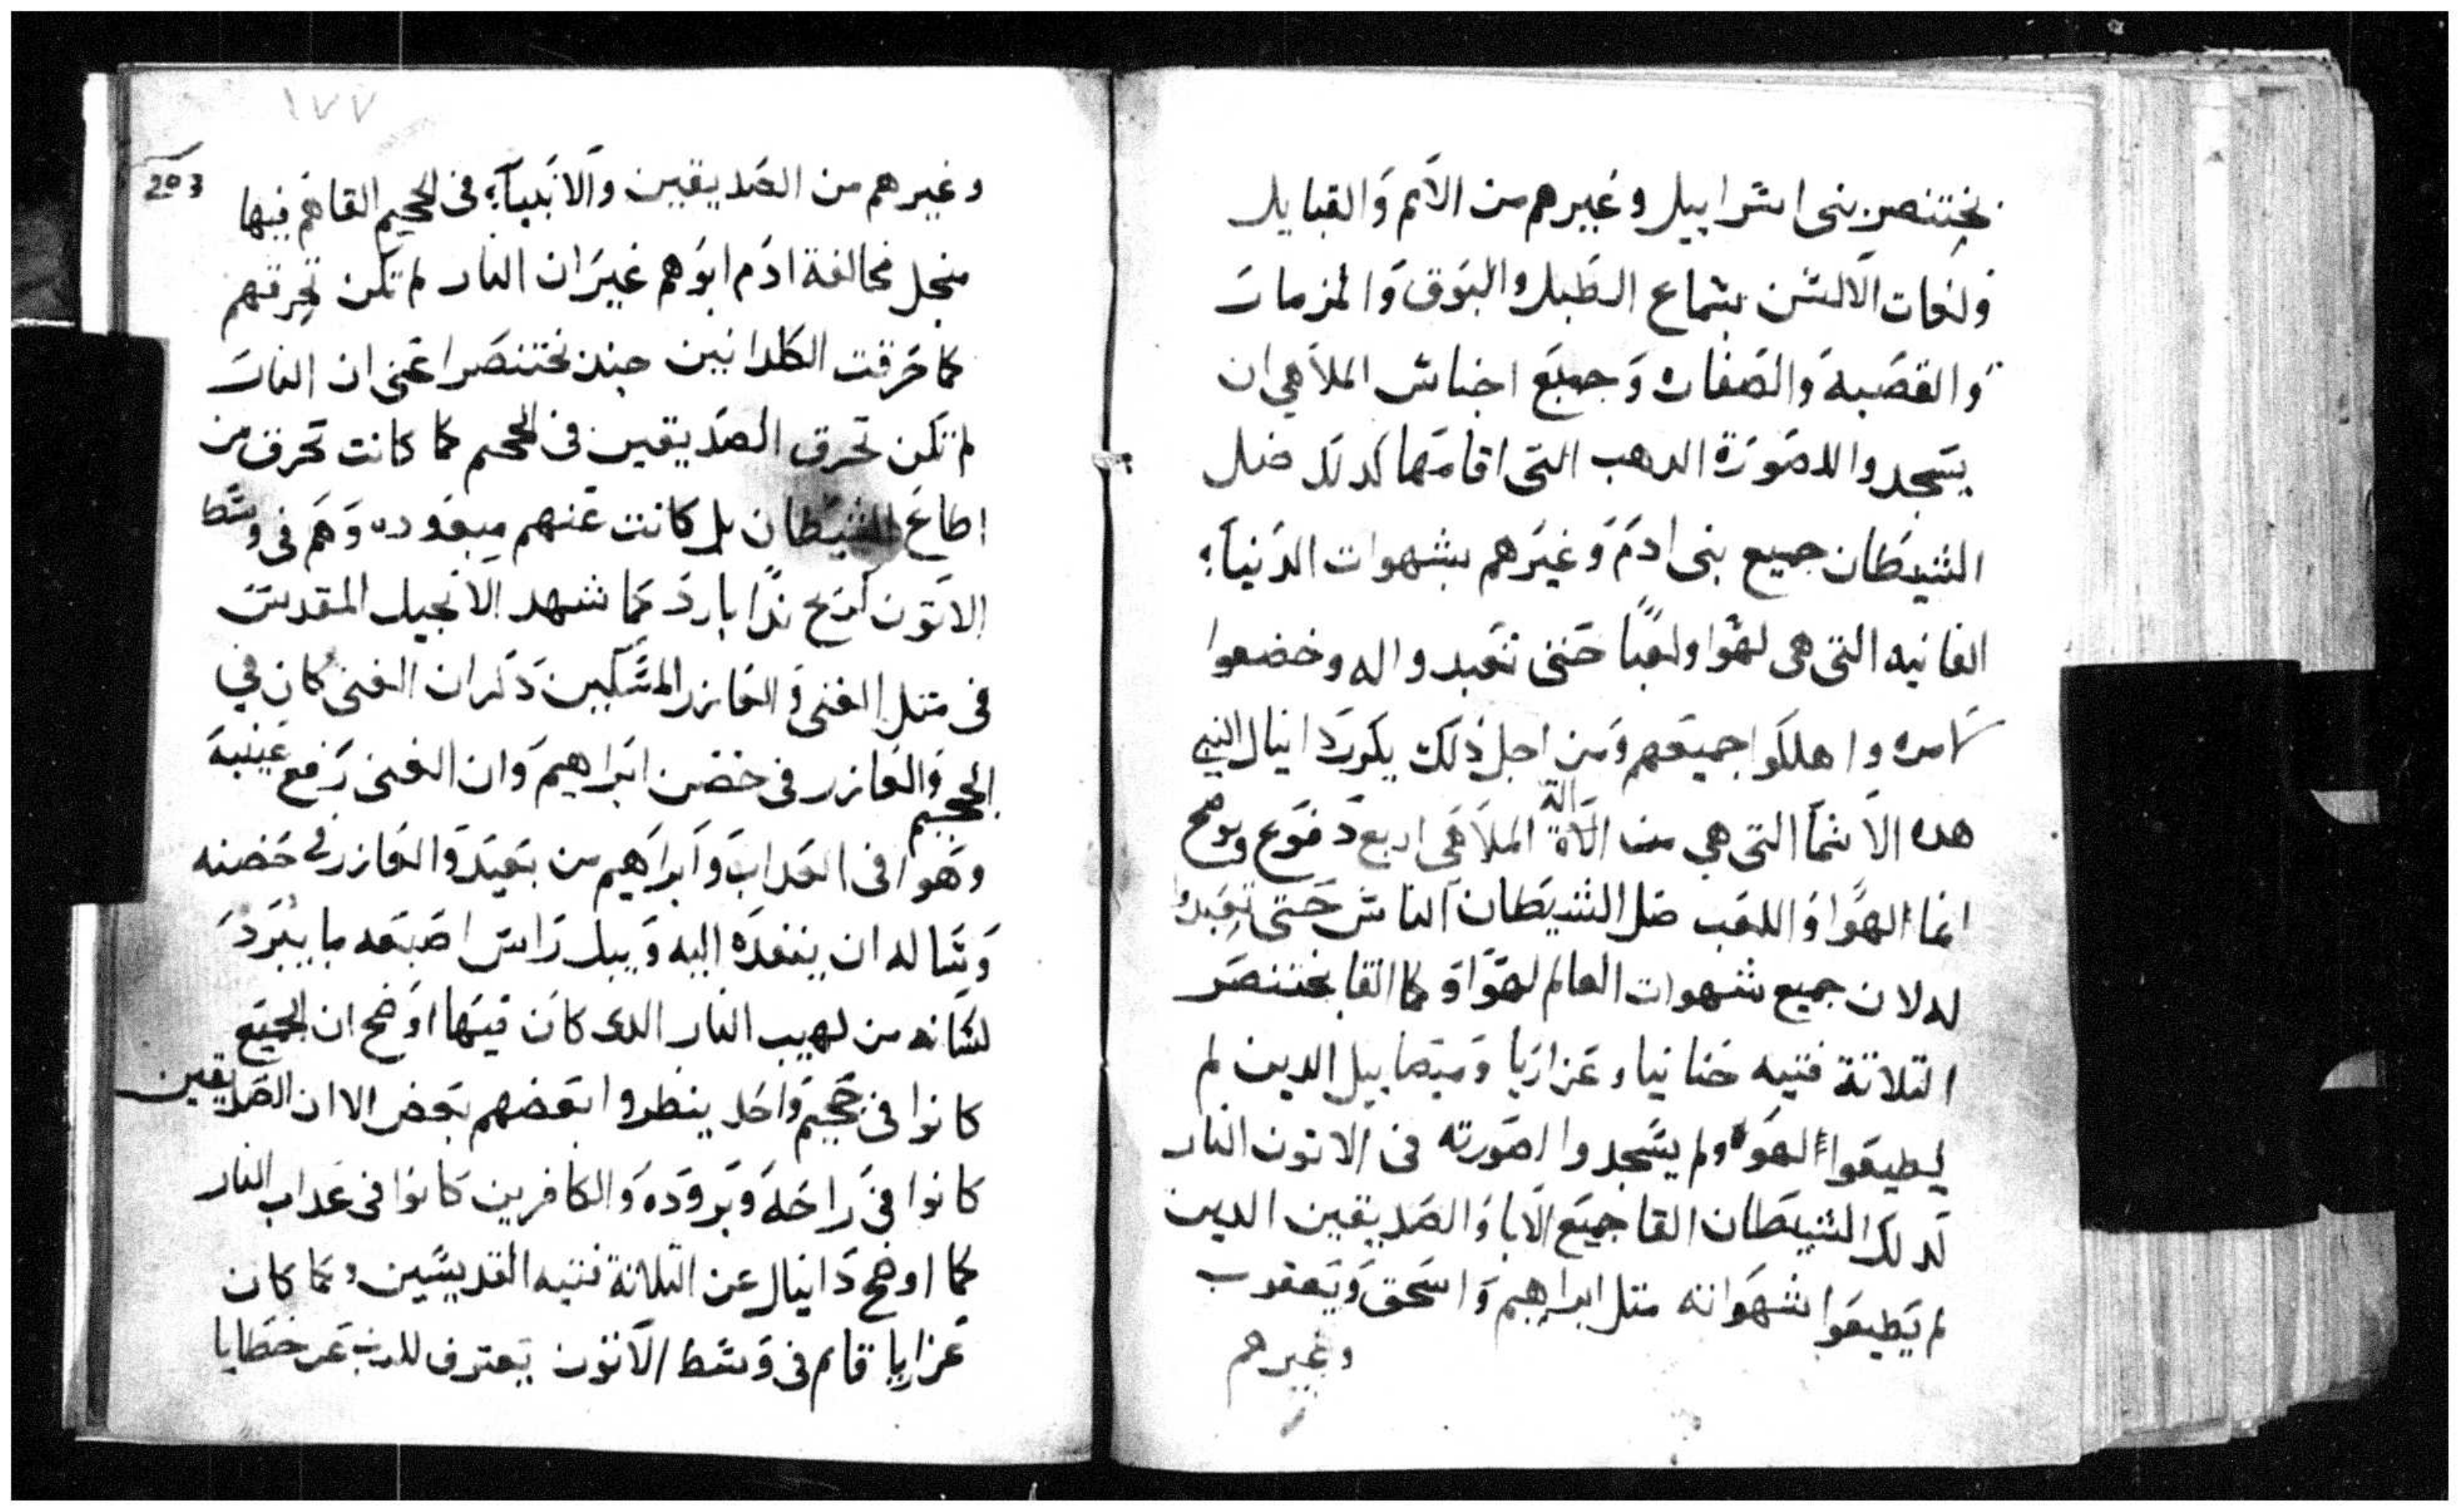 بختنصر بنى اسرابيل وغيرهم من الامم والقبايل
ولغات الالسن بسماع الطبل والبوق والمزمار
والقصبه والصفاره وجميع اجناس الملاهي ان
يسجدوا الصورة الدهب التى اقامها كدلك ضلل
الشيطان جميع بنى ادم وغيرهم بشهوات الدنيآء
الفانيه التى هى لهوا ولعبًا حتى تعبدوا له وخضعوا
لامره واهلكوا جميعهم ومن اجل ذلك يكور دانيال النبي
هده الاسما التى هي من الة الملاهي اربع دفوع ويوضح
انما الهوا واللعب ضل الشيطان الناس حتى تعبدوا
له لان جميع شهوات العالم لهوا وكما القا بختنصر
التلاتة فتيه حنانيا وعزاريا وميصاييل الدين لم
يطيعوا الهوه ولم يسجدوا لصورته فى الاتون النار
كدلك الشيطان القا جميع الابا والصديقين الدين
لم يطيعوا شهواته متل ابراهيم واسحق ويعقوب
وغيرهم
١٧٧
203
وغيرهم من الصديقين والانبيآء فى الجحيم القاهم فيها
منجل مخالفة ادم ابوهم غير ان النار لم تكن تحرقهم
كما حرقت الكلدانيين جند بختنصر اعنى ان النار
لم تكن تحرق الصديقين فى الجحيم كما كانت تحرق من
اطاع الشيطان بل كانت عنهم مبعوده وهم فى وسط
الاتون كريح ندًا بارد كما شهد الانجيل المقدس
فى متل الغنى والعازر المسكين دكر ان الغنى كان في
الجحيم والعازر فى حضن ابراهيم وان الغنى رفع عينيه
وهوا فى العداب وابراهيم من بعيد والعازر في حضنه
وساله ان ينفده اليه ويبل راس اصبعه ما يبرد
لسانه من لهيب النار الدى كان فيها اوضح ان الجميع
كانوا فى جحيم واحد ينطروا بعضهم بعض الا ان الصديقين
كانوا فى راحه وبروده والكافرين كانوا فى عداب النار
كما اوضح دانيال عن التلاتة فتيه القديسين وكما كان
عزاريا قام فى وسط الاتون يعترف للرب عن خطايا